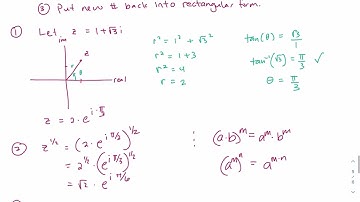 ③ Put new # back into rectangular form.
① Let z = 1 + √3 i
im
z
2
θ
real
r² = 1² + √3²
r² = 1 + 3
r² = 4
r = 2
tan(θ) = √3/1
tan⁻¹(√3) = π/3 ✓
θ = π/3
z = 2 · e^(i · π/3)
② z^(1/2) = (2 · e^(i π/3))^(1/2)
= 2^(1/2) · (e^(i π/3))^(1/2)
= √2 · e^(i π/6)
(a·b)^m = a^m · b^m
(a^m)^n = a^(m·n)